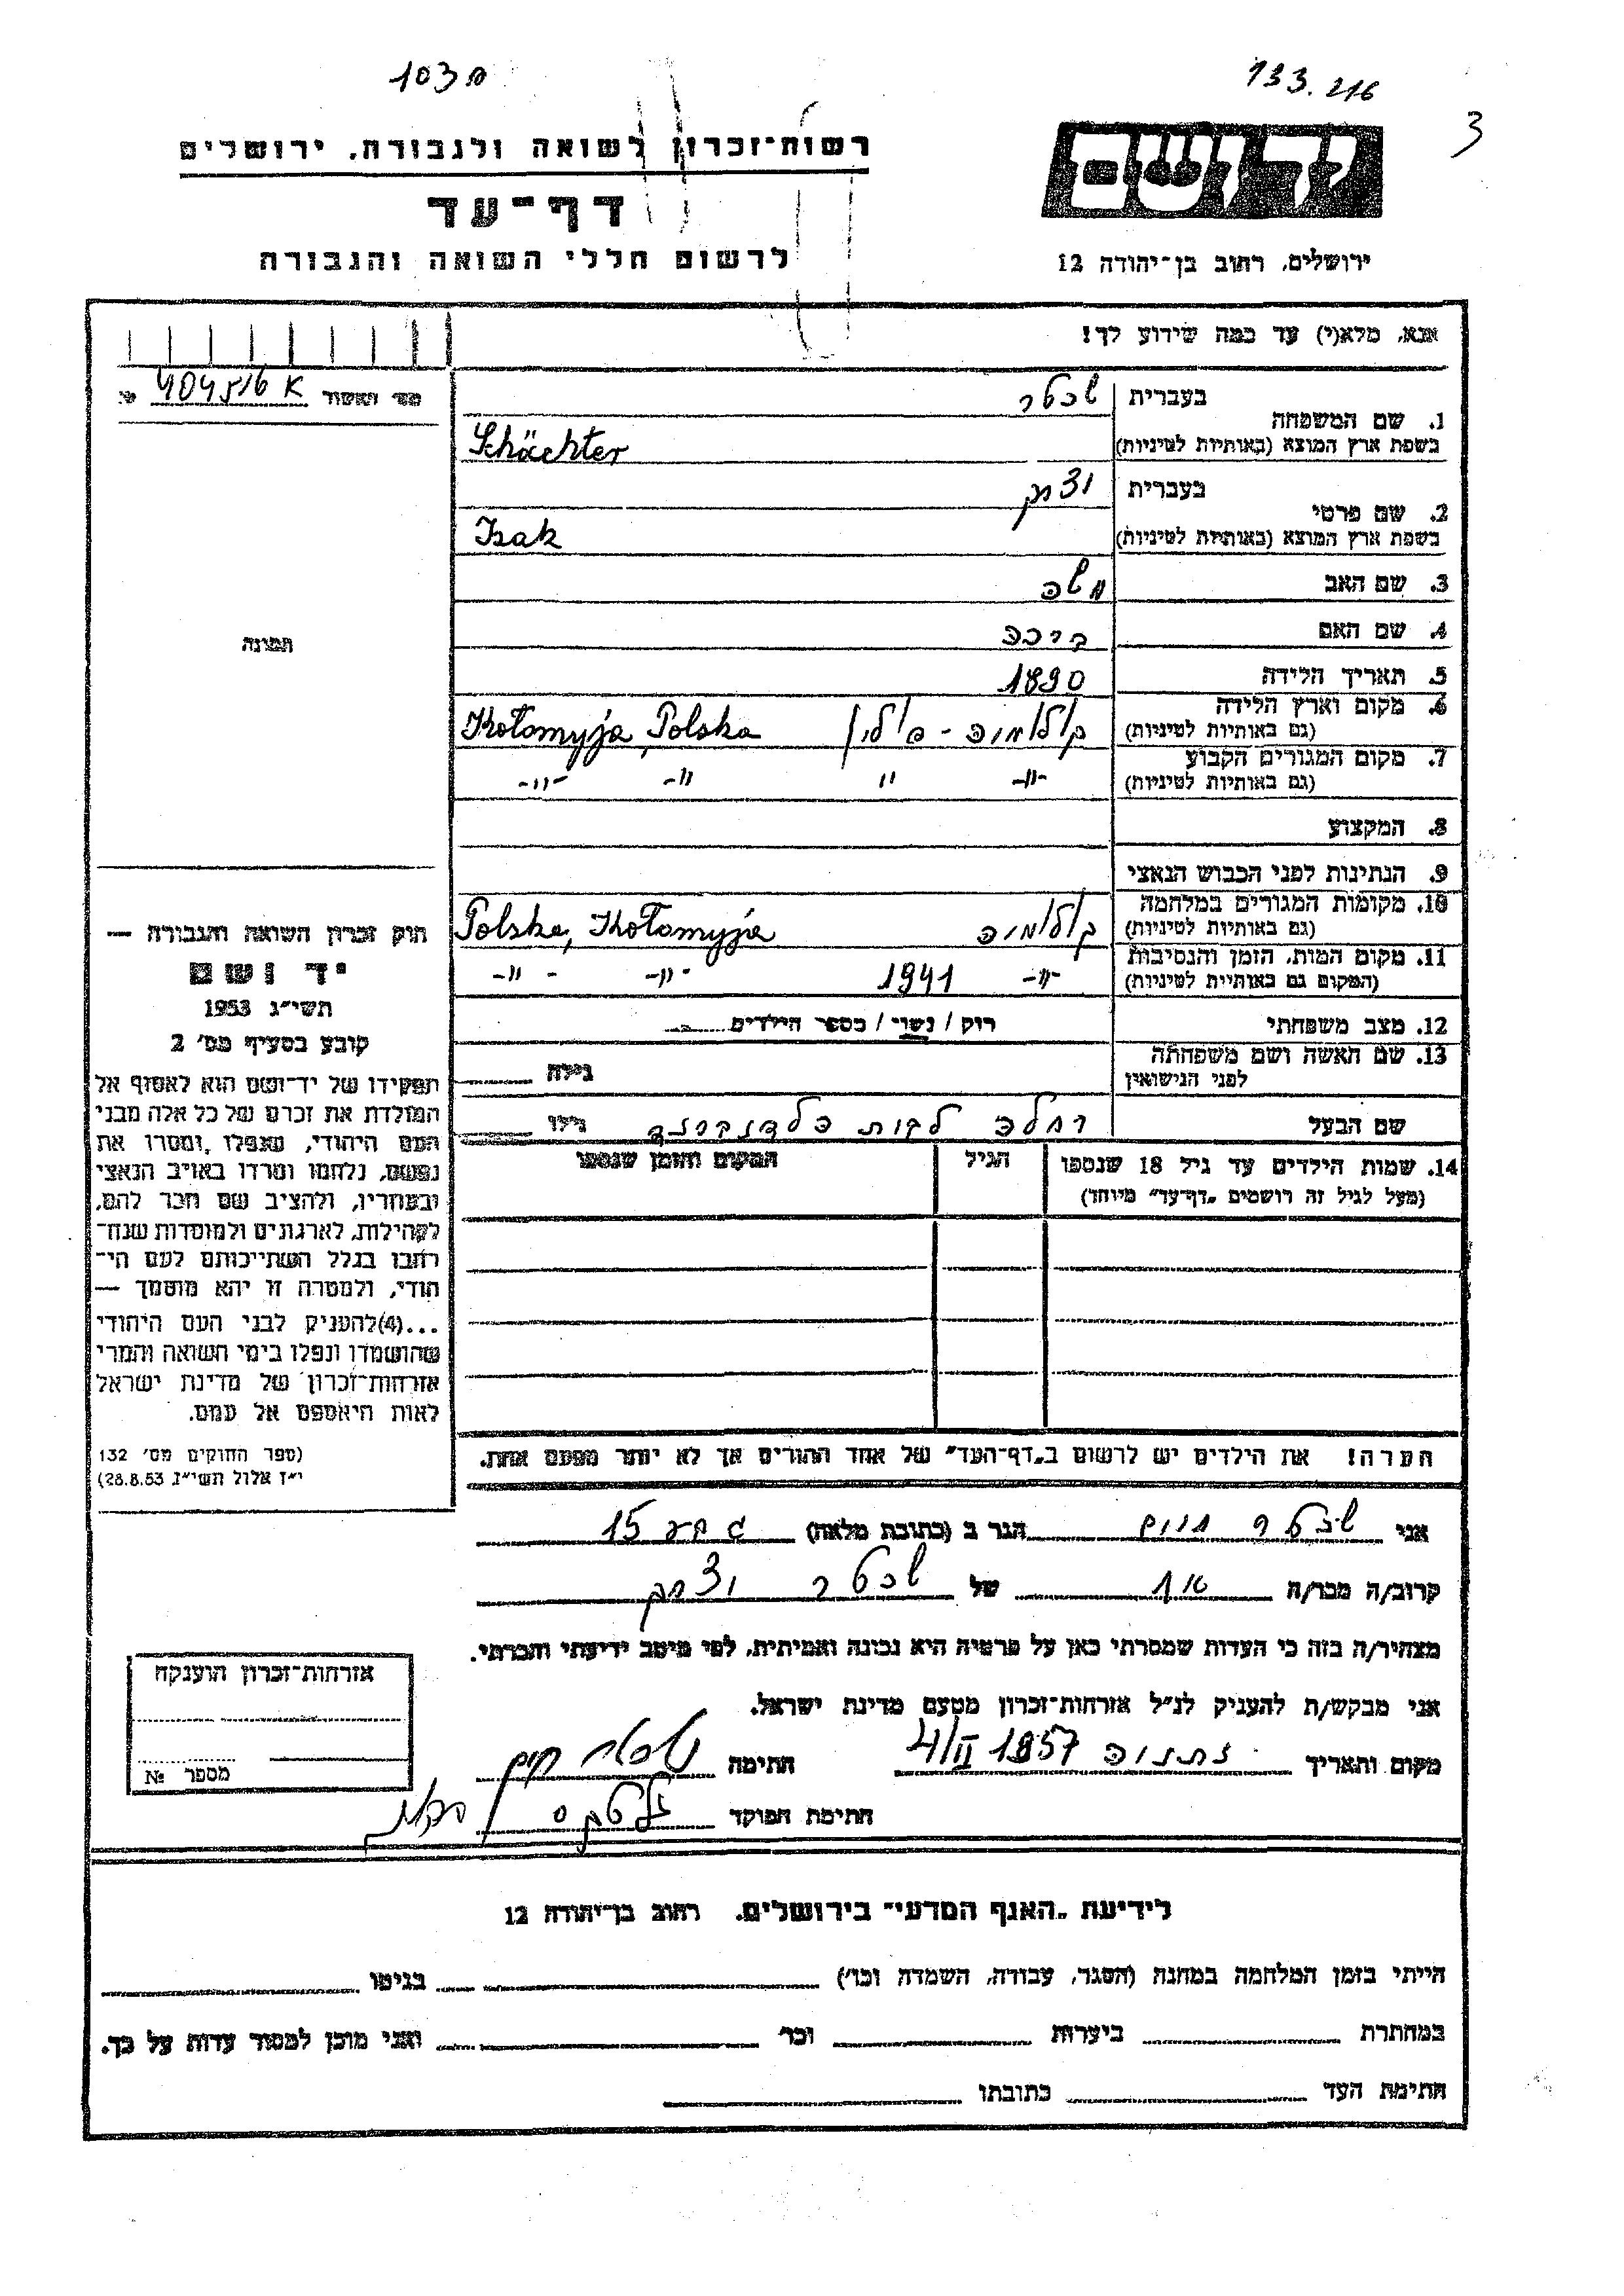 133.216
3
ידושם
ירושלים, רחוב בן־יהודה 12
רשות־זכרון לשואה ולגבורה, ירושלים
דף־עד
לרשום חללי השואה והגבורה
אנא, מלא(י) עד כמה שידוע לך!
1. שם המשפחה
בעברית שכטר
בשפת ארץ המוצא (באותיות לטיניות) Schächter
2. שם פרטי
בעברית יצחק
בשפת ארץ המוצא (באותיות לטיניות) Izak
3. שם האב משה
4. שם האם
5. תאריך הלידה 1890
6. מקום וארץ הלידה
(גם באותיות לטיניות) קולומיה - פולין Kołomyja, Polska
7. מקום המגורים הקבוע
(גם באותיות לטיניות) -"- " -"- -"-
8. המקצוע
9. הנתינות לפני הכבוש הנאצי
10. מקומות המגורים במלחמה
(גם באותיות לטיניות) קולומיה Polska, Kołomyja
11. מקום המות, הזמן והנסיבות
(המקום גם באותיות לטיניות) -"- 1941 -"- -"-
12. מצב משפחתי רוק / נשוי / מספר הילדים
13. שם האשה ושם משפחתה
לפני הנישואין גילה
שם הבעל רחלה לבית גילו
14. שמות הילדים עד גיל 18 שנספו
(מעל לגיל זה רושמים „דף־עד" מיוחד)
הגיל
המקום והזמן שנספו
הערה! את הילדים יש לרשום ב„דף־העד" של אחד ההורים אך לא יותר מפעם אחת.
404516 K
תמונה
חוק זכרון השואה והגבורה —
יד ושם
תשי״ג 1953
קובע בסעיף מס׳ 2
תפקידו של יד־ושם הוא לאסוף אל
המולדת את זכרם של כל אלה מבני
העם היהודי, שנפלו ומסרו את
נפשם, נלחמו ומרדו באויב הנאצי
ובעוזריו, ולהציב שם וזכר להם,
לקהילות, לארגונים ולמוסדות שנח־
רבו בגלל השתייכותם לעם הי־
הודי, ולמטרה זו יהא מוסמך —
...(4)להעניק לבני העם היהודי
שהושמדו ונפלו בימי השואה והמרי
אזרחות־זכרון של מדינת ישראל
לאות היאספם אל עמם.
(ספר החוקים מס׳ 132
י״ז אלול תשי״ג 28.8.53)
אני שכטר חיים הגר ב (כתובת מלאה) 15
קרוב/ה מכר/ה של שכטר יצחק
מצהיר/ה בזה כי העדות שמסרתי כאן על פרטיה היא נכונה ואמיתית, לפי מיטב ידיעתי והכרתי.
אני מבקש/ת להעניק לנ״ל אזרחות־זכרון מטעם מדינת ישראל.
מקום ותאריך נתניה 4/II 1957 חתימה שכטר חיים
חתימת הפוקד
אזרחות־זכרון הוענקה
מספר №
לידיעת „האגף המדעי" בירושלים, רחוב בן־יהודה 12
הייתי בזמן המלחמה במחנה (הסגר, עבודה, השמדה וכו׳) בגיטו
במחתרת ביערות וכו׳ ואני מוכן למסור עדות על כך.
חתימת העד כתובתו